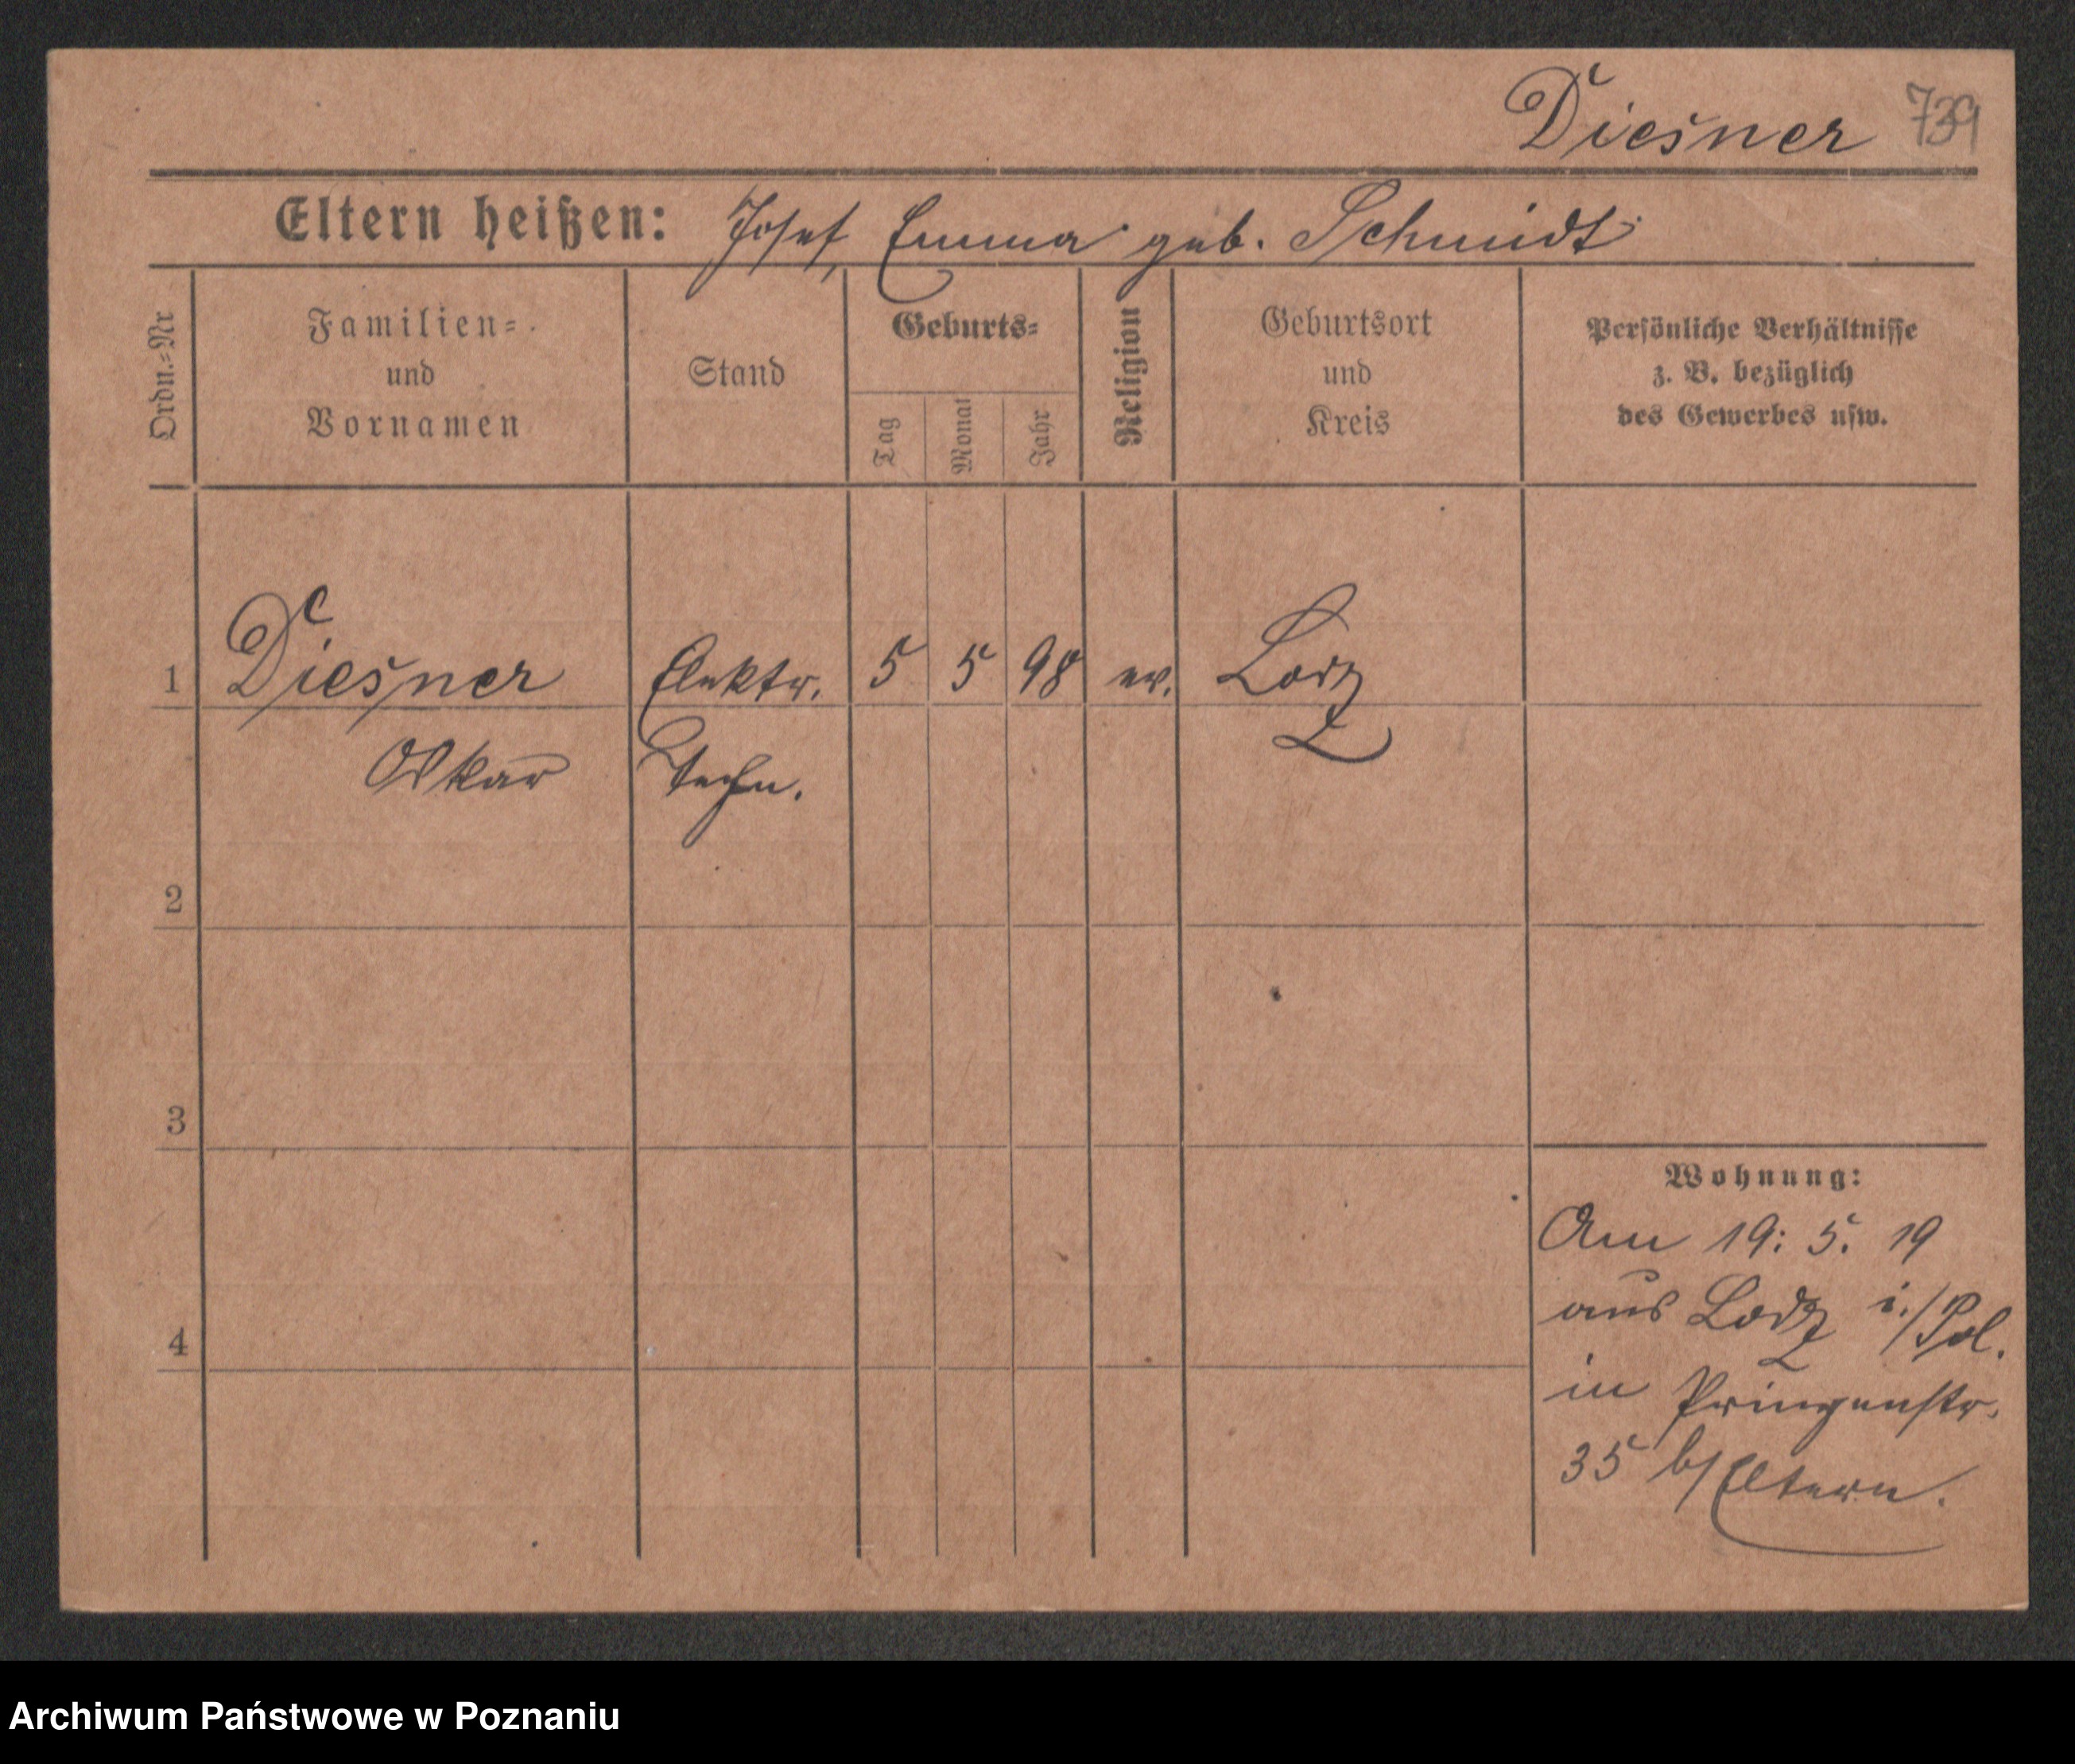 Diesner 739
Eltern heißen: Josef, Emma geb. Schmidt
Ordn.-Nr
Familien-
und
Vornamen
Stand
Geburts-
Tag
Monat
Jahr
Religion
Geburtsort
und
Kreis
Persönliche Verhältnisse
z. B. bezüglich
des Gewerbes usw.
1 Diesner Elektr. 5 5 98 ev. Lodz
Oskar Techn.
2
3
4
Wohnung:
Am 19. 5. 19
aus Lodz i./Pol.
in Prinzenstr.
35 b/Eltern.
Archiwum Państwowe w Poznaniu